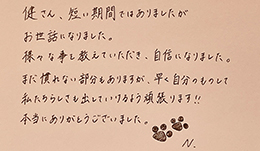 健さん、短い期間ではありましたが
お世話になりました。
様々な事を教えていただき、自信になりました。
まだ慣れない部分もありますが、早く自分のものにして
私たちらしさも出していけるよう頑張ります!!
本当にありがとうございました。
N.